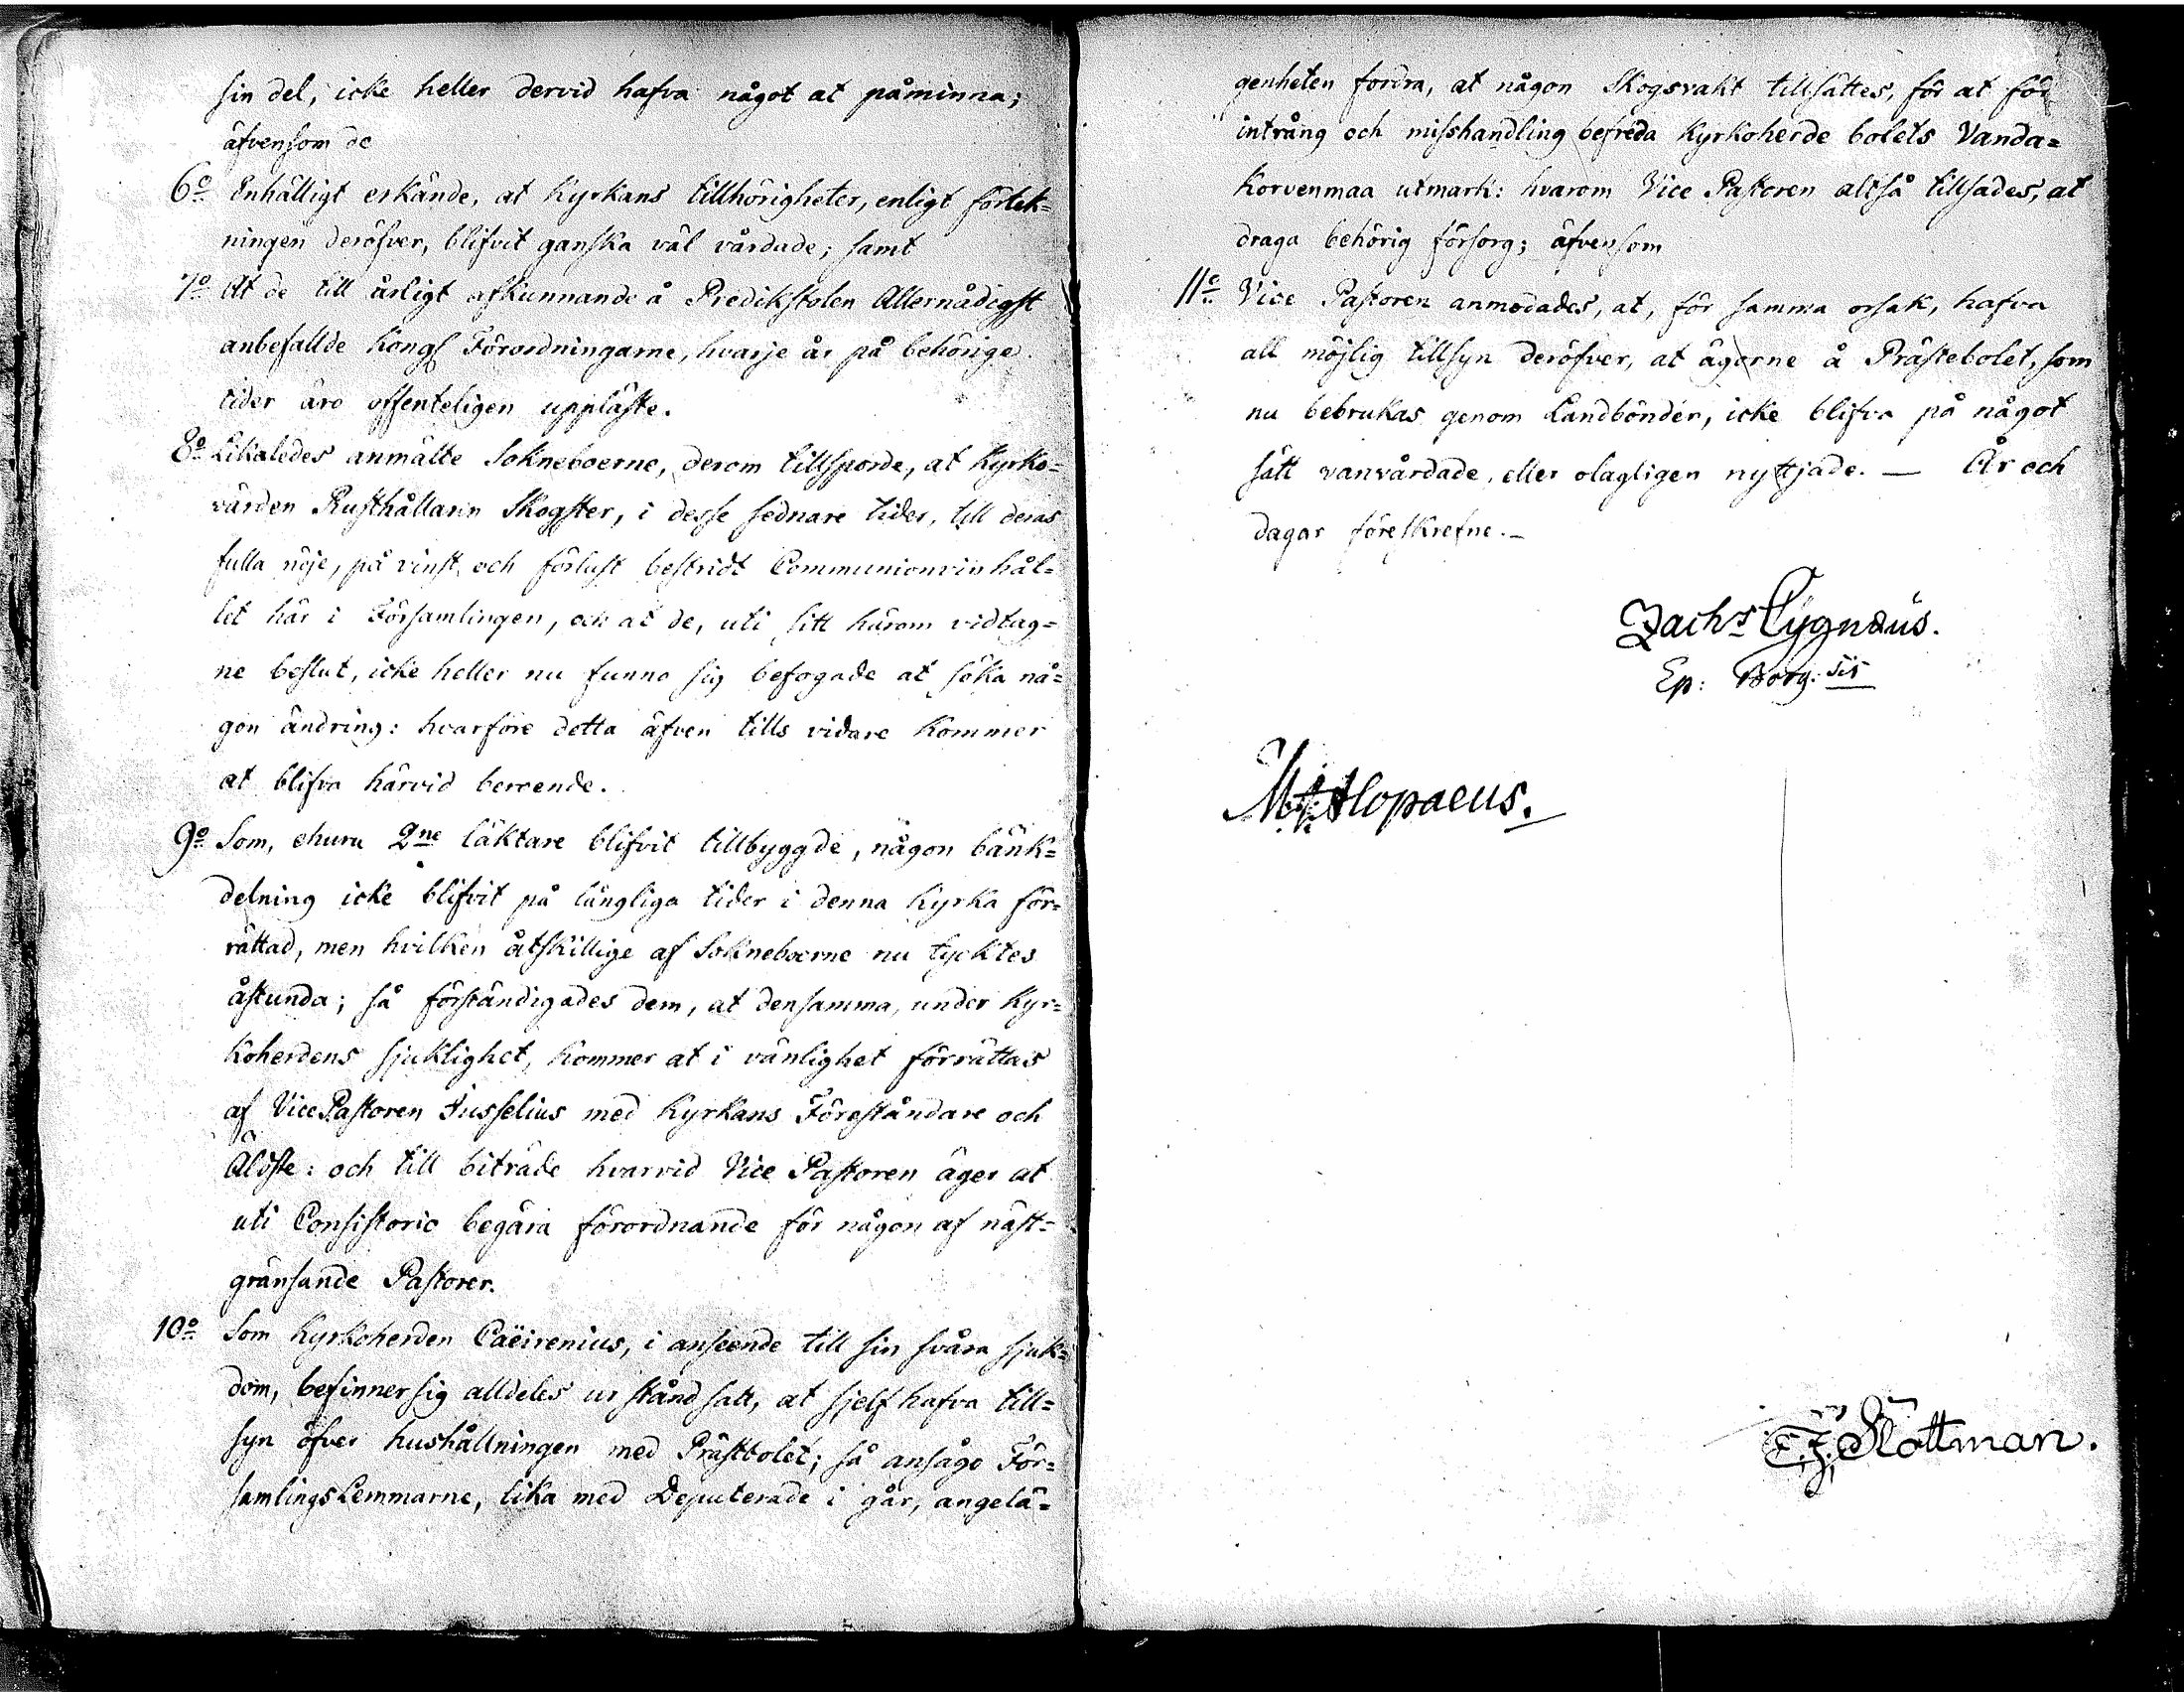 sin del, icke heller dervid hafva något at påminna;
äfvensom de
6o Enhälligt erkände, at Kyrkans tillhörigheter, enligt förtek=
ningen deröfver, blifvit ganska väl vårdade; samt
7o At de till årligt afkunnande å Predikstolen Allernådigst
anbefallde Kongl Förordningarne, hvarje år på behörige
tider äro offenteligen uppläste.
8o Likaledes anmälte Sokneboerne, derom tillsporde, at Kyrko=
värden Rusthållarin Skogster, i desse sednare tider, till deras
fulla nöje, på vinst och förlust bestridt Communionvinhål=
let här i Församlingen, och at de, uti sitt härom vidtag=
ne beslut, icke heller nu funno sig befogade at söka nå=
gon ändring: hvarföre detta äfven tills vidare kommer
at blifva härvid beroende.
9o Som, ehuru 2ne läktare blifvit tillbyggde, någon bänk=
delning icke blifvit på långliga tider i denna Kyrka för=
rättad, men hvilken åtskillige af Sokneboerne nu tycktes
åstunda; så förständigades dem, at densamma, under Kyr=
koherdens sjuklighet, kommer at i vänlighet förrättas
af Vice Pastoren Jusselius med Kyrkans Föreståndare och
Äldste: och till biträde hvarvid Vice Pastoren äger at
uti Consistorio begära förordnande för någon af näst=
gränsande Pastorer.
10o Som Kyrkoherden Caëirenius, i anseende till sin svåra sjuk=
dom, befinner sig alldeles ur stånd satt, at sjelf hafva till=
syn öfver hushållningen med Prästbolet; så ansågo För=
samlings Lemmarne, lika med Deputerade i går, angelä=
genheten fordra, at någon Skogsvakt tillsättes, för at för
intrång och misshandling befreda Kyrkoherde bolets Vanda=
korvenmaa utmark: hvarom Vice Pastoren altså tillsades, at
draga behörig försorg; äfvensom
11o Vice Pastoren anmodades, at, för samma orsak, hafva
all möjlig tillsyn deröfver, at ägorne å Prästebolet, som
nu bebrukas genom Landbönder, icke blifva på något
sätt vanvårdade, eller olagligen nyttjade. — År och
dagar föreskrefne.—
Zachs Cygnæus.
Ep: Borg: sis
Alopaeus.
E. J. Slottman.